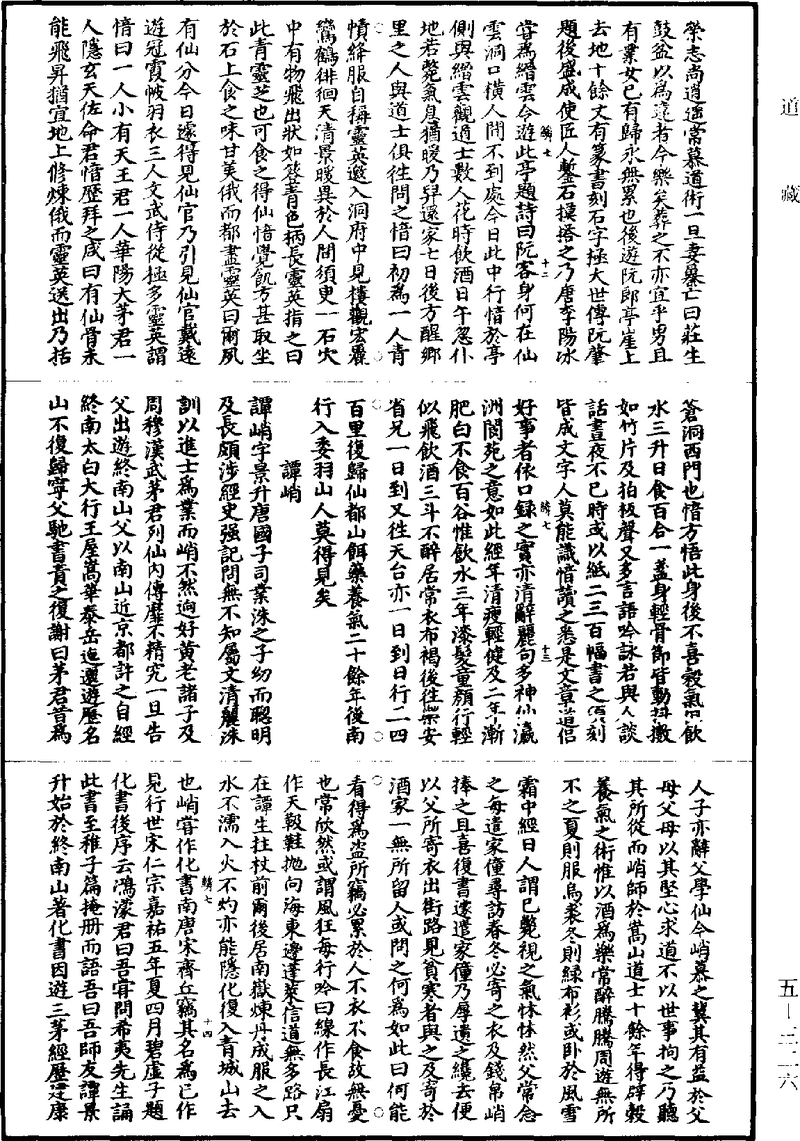 道藏
榮志尚逍遙常慕道術一旦妻暴亡曰莊生
鼓盆以為達者今樂矣葬之不亦宜乎男且
有業女已有歸永無累也後遊阮郎亭崖上
去地十餘丈有篆書刻石字極大世傳阮肇
題後盛成使匠人鑿石摸搭之乃唐李陽冰
嘗為縉雲令遊此亭題詩曰阮客身何在仙
雲洞口橫人間不到處今日此中行愔於亭
側與縉雲觀道士數人花時飲酒日午忽仆
地若斃氣息猶暖乃舁還家七日後方醒鄉
里之人與道士俱往問之愔曰初為一人青
幘絳服自稱靈英邀入洞府中見樓觀宏麗
鸞鶴徘徊天清景暖異於人間須臾一石穴
中有物飛出狀如簦青色柄長靈英指之曰
此青靈芝也可食之得仙愔覺飢方甚取坐
於石上食之味甘美俄而都盡靈英曰爾夙
有仙分今日遽得見仙官乃引見仙官戴遠
遊冠霞帔羽衣三人文武侍從極多靈英謂
愔曰一人小有天王君一人華陽大茅君一
人隱玄天佐命君愔歷拜之咸曰有仙骨未
能飛昇猶宜地上修煉俄而靈英送出乃括
蒼洞西門也愔方悟此身後不喜穀氣但飲
水三升日食百合一盞身輕骨節皆動抖擻
如竹片及拍板聲又多言語吟詠若與人談
話晝夜不已時或以紙二三百幅書之頃刻
皆成文字人莫能識愔讀之悉是文章道侶
好事者依口錄之實亦清辭麗句多神仙瀛
洲閬苑之意如此經年清瘦輕健及二年漸
肥白不食百谷惟飲水三年漆髮童顏行輕
似飛飲酒三斗不醉居常衣布褐後往樂安
省兄一日到又往天台亦一日到日行二四
百里復歸仙都山餌藥養氣二十餘年後南
行入委羽山人莫得見矣
譚峭
譚峭字景升唐國子司業洙之子幼而聰明
及長頗涉經史强記問無不知屬文清麗洙
訓以進士為業而峭不然迥好黃老諸子及
周穆漢武茅君列仙內傳靡不精究一旦告
父出遊終南山父以南山近京都許之自經
終南太白大行王屋嵩華泰岳迤邐遊歷名
山不復歸寧父馳書責之復謝曰茅君昔為
人子亦辭父學仙今峭慕之冀其有益於父
母父母以其堅心求道不以世事拘之乃聽
其所從而峭師於嵩山道士十餘年得辟穀
養氣之術惟以酒為樂常醉騰騰周遊無所
不之夏則服烏裘冬則綠布衫或臥於風雪
霜中經日人謂已斃視之氣怵怵然父常念
之每遣家僮尋訪春冬必寄之衣及錢帛峭
捧之且喜復書遽遣家僮乃厚遺之纔去便
以父所寄衣出街路見貧寒者與之及寄於
酒家一無所留人或問之何為如此曰何能
看得為盜所竊必累於人不衣不食故無憂
也常欣然或謂風狂每行吟曰線作長江扇
作天靸鞋抛向海東邊蓬萊信道無多路只
在譚生拄杖前爾後居南嶽煉丹成服之入
水不濡入火不灼亦能隱化復入青城山去
也峭嘗作化書南唐宋齊丘竊其名為已作
見行世宋仁宗嘉祐五年夏四月碧虛子題
化書後序云鴻濛君曰吾甞問希夷先生誦
此書至稚子篇掩册而語吾曰吾師友譚景
升始於終南山著化書因遊三茅經歷建康
五-三二六